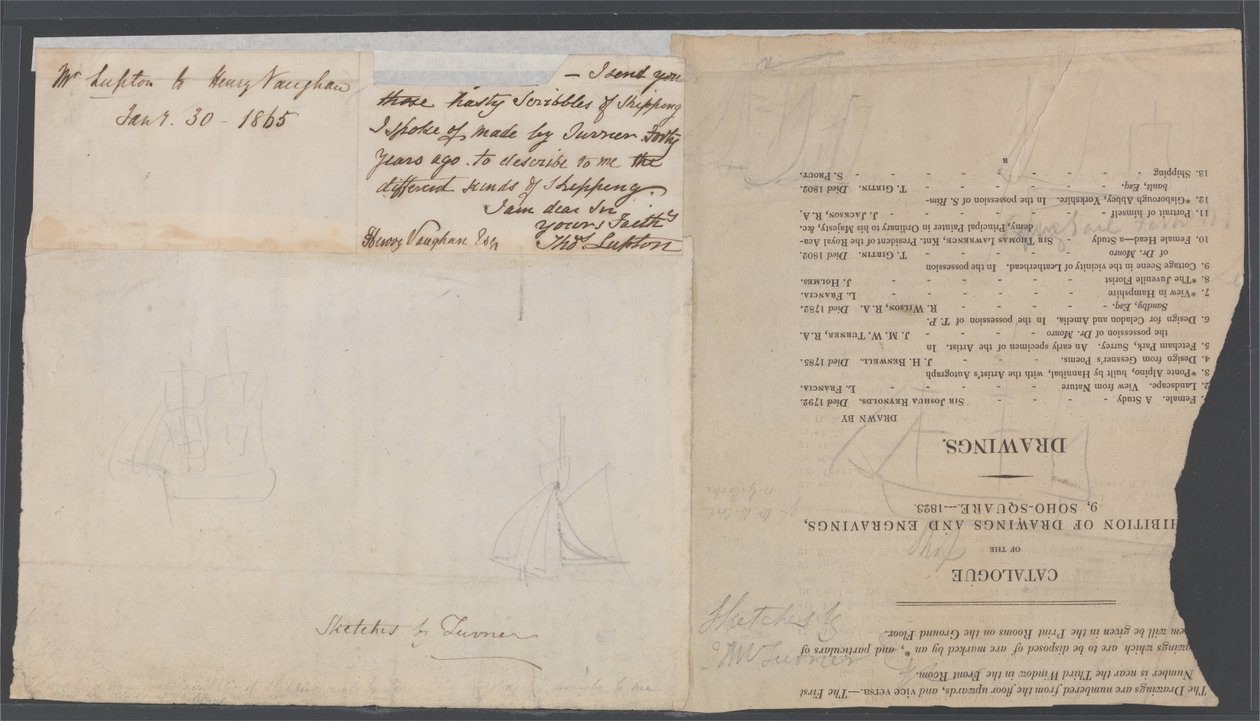 Mr Lupton to Henry Vaughan
Jany. 30 - 1865
— I send you
those hasty Scribbles of Shipping
I spoke of made by Turner Forty
Years ago. to describe to me the
different kinds of Shipping.
I am dear Sir
Yours Faithy
Henry Vaughan Esq Thos Lupton
Sketches by Turner
The Drawings are numbered from the floor upwards, and vice versa.—The First
Number is near the Third Window in the Front Room.
which are to be disposed of are marked by an *, and particulars of
em will be given in the Print Rooms on the Ground Floor.
CATALOGUE
OF THE
HIBITION OF DRAWINGS AND ENGRAVINGS,
9, SOHO-SQUARE.—1823.
DRAWINGS.
DRAWN BY
1. Female. A Study - - - SIR JOSHUA REYNOLDS. Died 1792.
2. Landscape. View from Nature - - - L. FRANCIA.
3. *Ponte Alpino, built by Hannibal, with the Artist's Autograph
4. Design from Gessner's Poems. - - J. H. BENWELL. Died 1785.
5. Fetcham Park, Surrey. An early specimen of the Artist. In
the possession of Dr. Monro - - - J. M. W. TURNER, R.A.
6. Design for Celadon and Amelia. In the possession of T. P.
Sandby, Esq. - - - R. WILSON, R.A. Died 1782.
7. *View in Hampshire - - - L. FRANCIA.
8. *The Juvenile Florist - - - J. HOLMES.
9. Cottage Scene in the vicinity of Leatherhead. In the possession
of Dr. Monro - - - T. GIRTIN. Died 1802.
10. Female Head—a Study - SIR THOMAS LAWRENCE, Knt. President of the Royal Aca-
demy, Principal Painter in Ordinary to his Majesty, &c.
11. Portrait of himself - - - J. JACKSON, R.A.
12. *Gisborough Abbey, Yorkshire. In the possession of S. Rim-
bault, Esq. - - - T. GIRTIN. Died 1802.
13. Shipping - - - S. PROUT.
B
Ship
Sketches by
J M W Turner